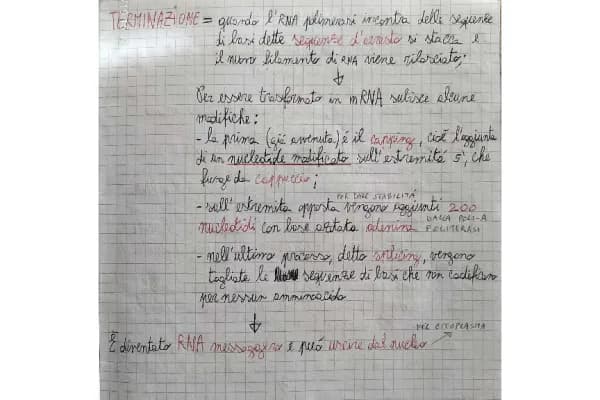 TERMINAZIONE = quando l'RNA polimerasi incontra delle sequenze
di basi dette sequenze d'arresto si stacca e
il nuovo filamento di RNA viene rilasciato;
↓
Per essere trasformato in mRNA subisce alcune
modifiche:
- la prima (già avvenuta) è il capping, cioè l'aggiunta
di un nucleotide modificato sull'estremità 5', che
funge da cappuccio;
PER DARE STABILITÀ
- sull'estremità opposta vengono aggiunti 200
nucleotidi con base azotata adenina DALLA POLI-A
POLITERASI
- nell'ultimo processo, detto splicing, vengono
tagliate le sequenze di basi che non codificano
per nessun amminoacido
↓
NEL CITOPLASMA
È diventato RNA messaggero e può uscire dal nucleo